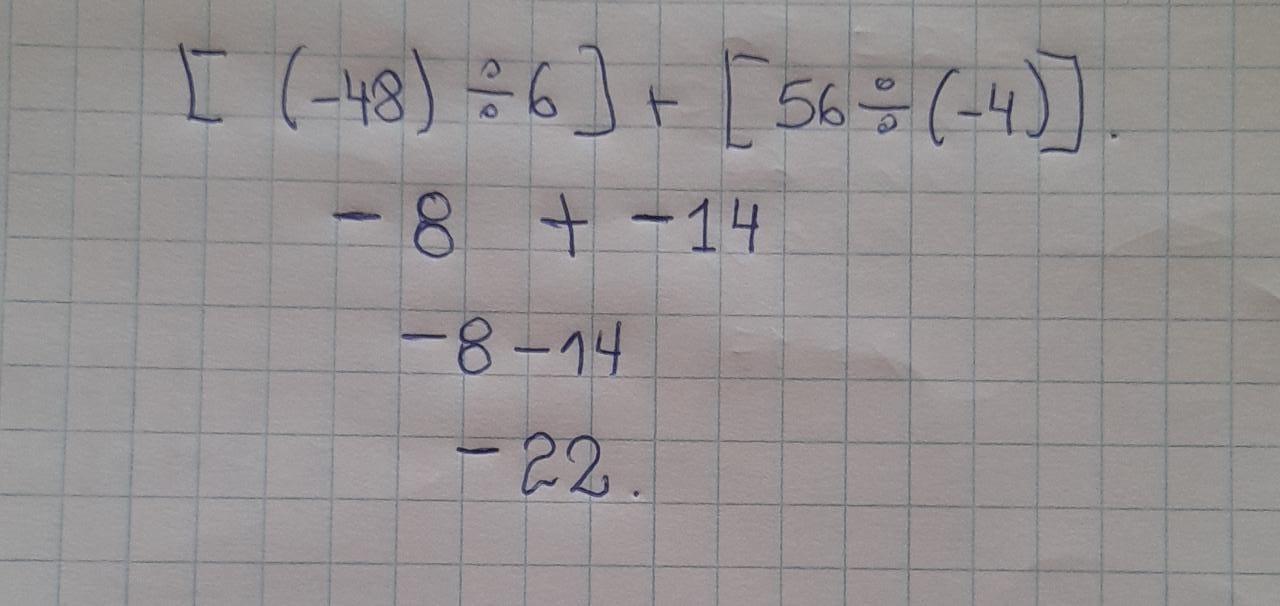 [ (-48) ÷ 6 ] + [ 56 ÷ (-4) ].
- 8 + - 14
- 8 - 14
- 22.